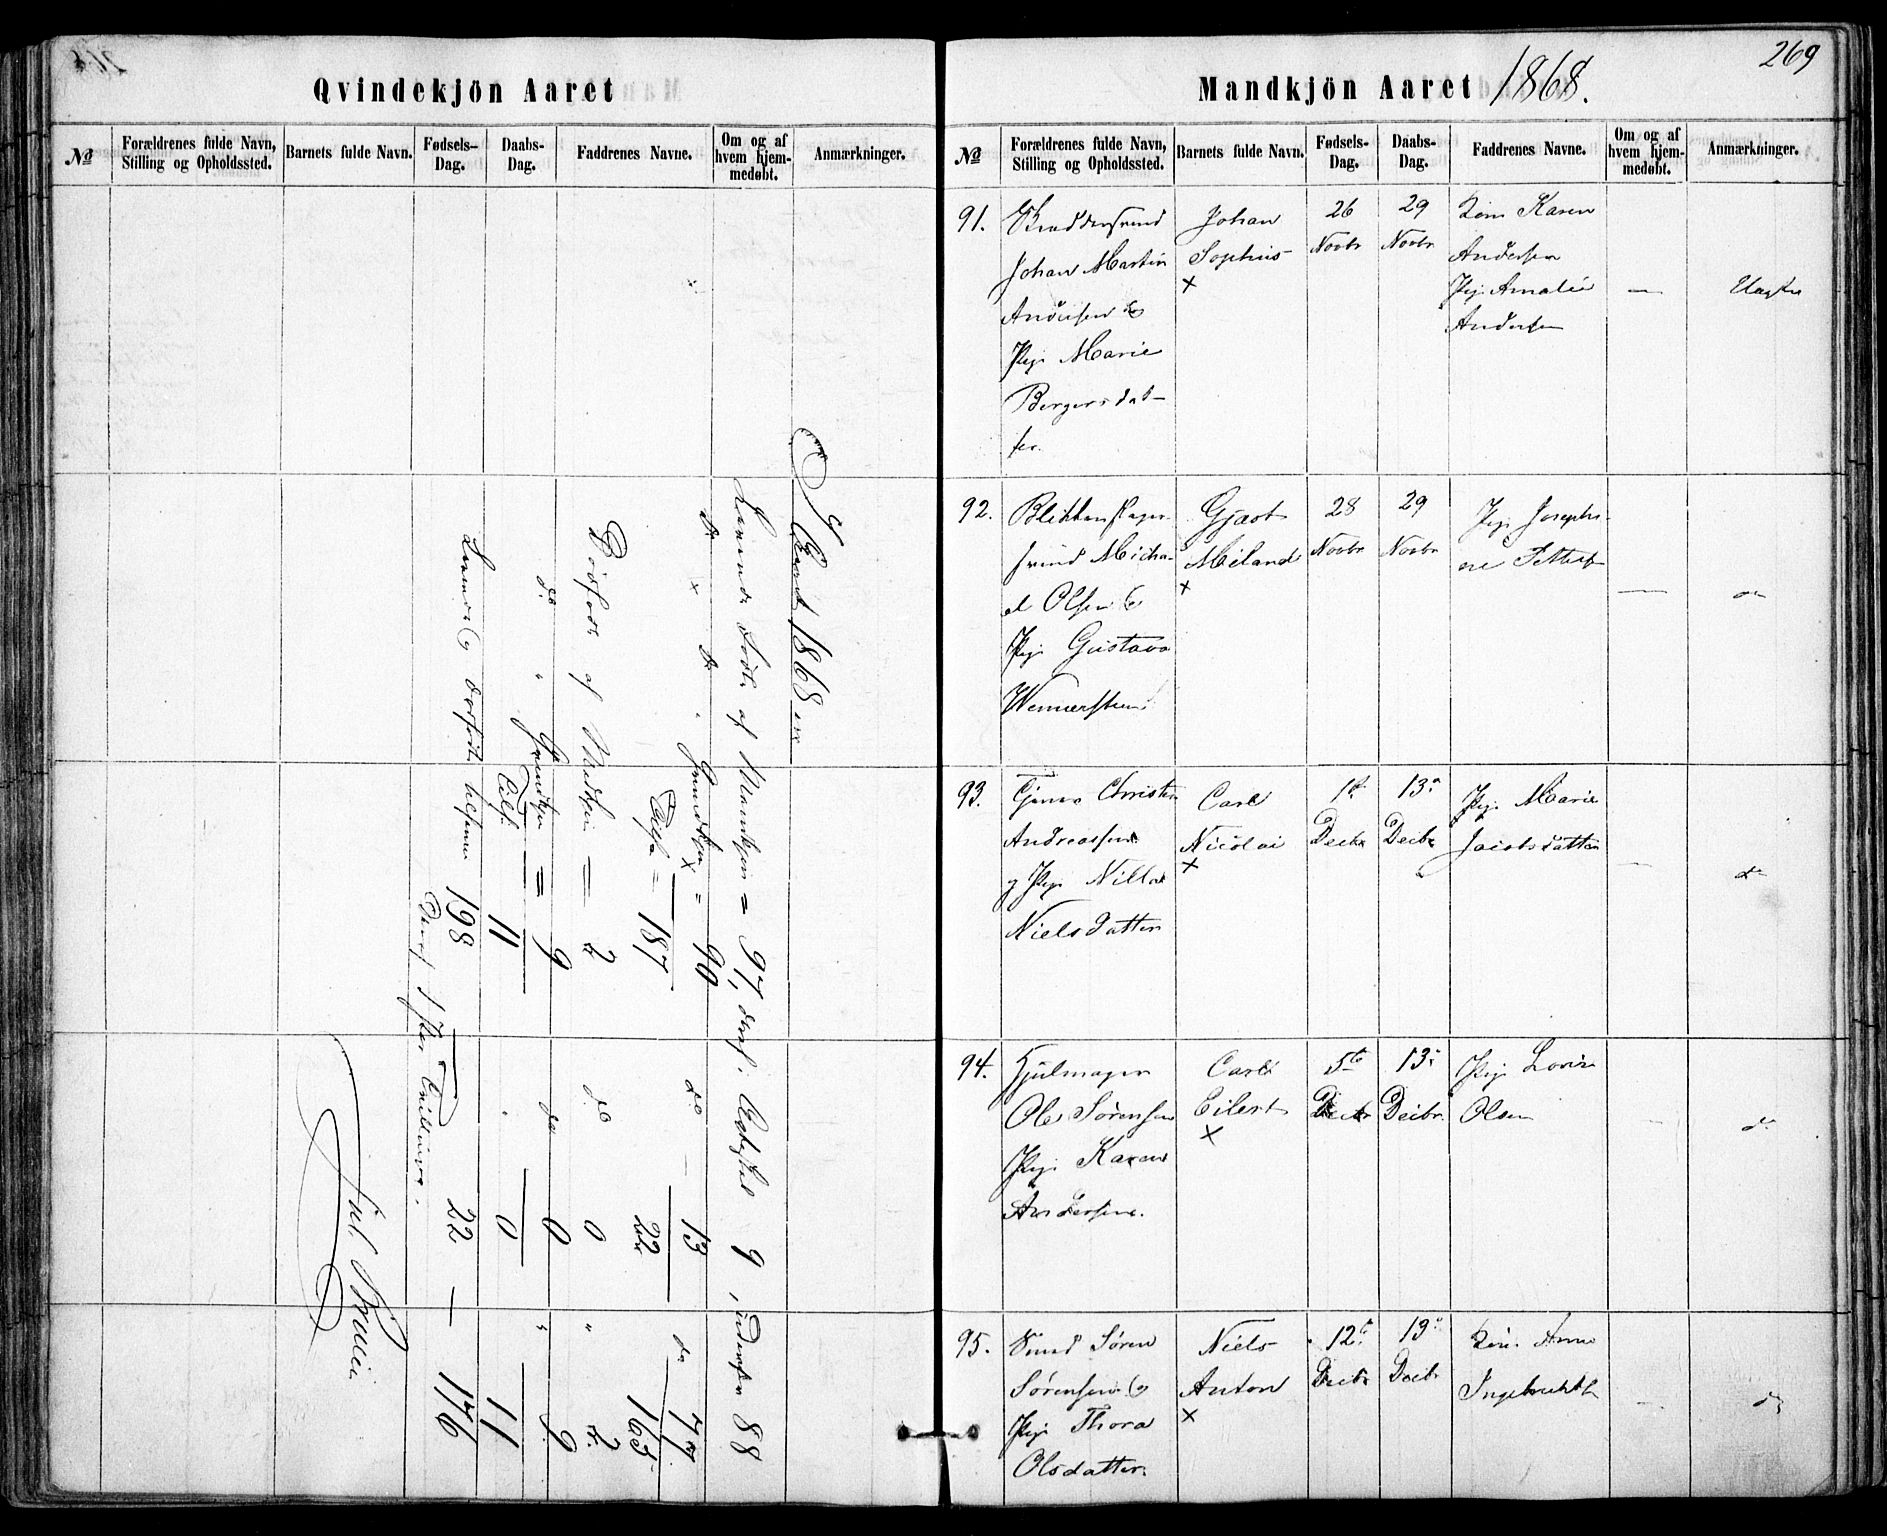 Qvindekjön Aaret
№
Forældrenes fulde Navn, Stilling og Opholdssted.
Barnets fulde Navn.
Fødsels-Dag.
Daabs-Dag.
Faddrenes Navne.
Om og af hvem hjem-medøbt.
Anmærkninger.
Aaret 1868 er
Levende Fødte af Mandkjøn = 97, deraf Uægtefød 9, 88
do " do " Qvindkjøn = 90 do - 13 do 77
Tilsa = 187 22 165
Dødfødte af Mandkjøn = 2 do 0 " 2
do " Qvindkjøn = 9 do 0 " 9
Tils. 11 0 11
Levende og dødfødte tilsammen 198 22 — 176
Deraf 1 Tvillinger.
269
Mandkjön Aaret 1868.
№
Forældrenes fulde Navn, Stilling og Opholdssted.
Barnets fulde Navn.
Fødsels-Dag.
Daabs-Dag.
Faddrenes Navne.
Om og af hvem hjem-medøbt.
Anmærkninger.
91.
Johan Martin
Andersen &
Pige Marie
Bergersdat-
ter.
Johan
Sophus
×
26
Novbr
29
Novbr
Karen
Andersen
Pige Amalie
Andersen
—
Uægte
92.
Svend Micha-
el Olsen &
Pige Gustava
Gjart
Miland
×
28
Novbr
29
Novbr
Pige Josephi-
ne
—
do
93.
Tjener Christen
Andreassen
og Pige
Nielsdatter
Carl
Nicolai
×
1st
Decbr
13.
Decbr
Pige Marie
Jacobsdatter
—
do
94.
Hjulmager
Ole Sørensen
Pige Karen
Andersen.
Carl
Eilert
×
5te
Decbr
13.
Decbr
Pige Lovise
Olsen
—
do
95.
Svend Søren
Sørensen &
Pige Thora
Olsdatter.
Niels
Anton
×
12te
Decbr
13.
Decbr
Anne
—
do